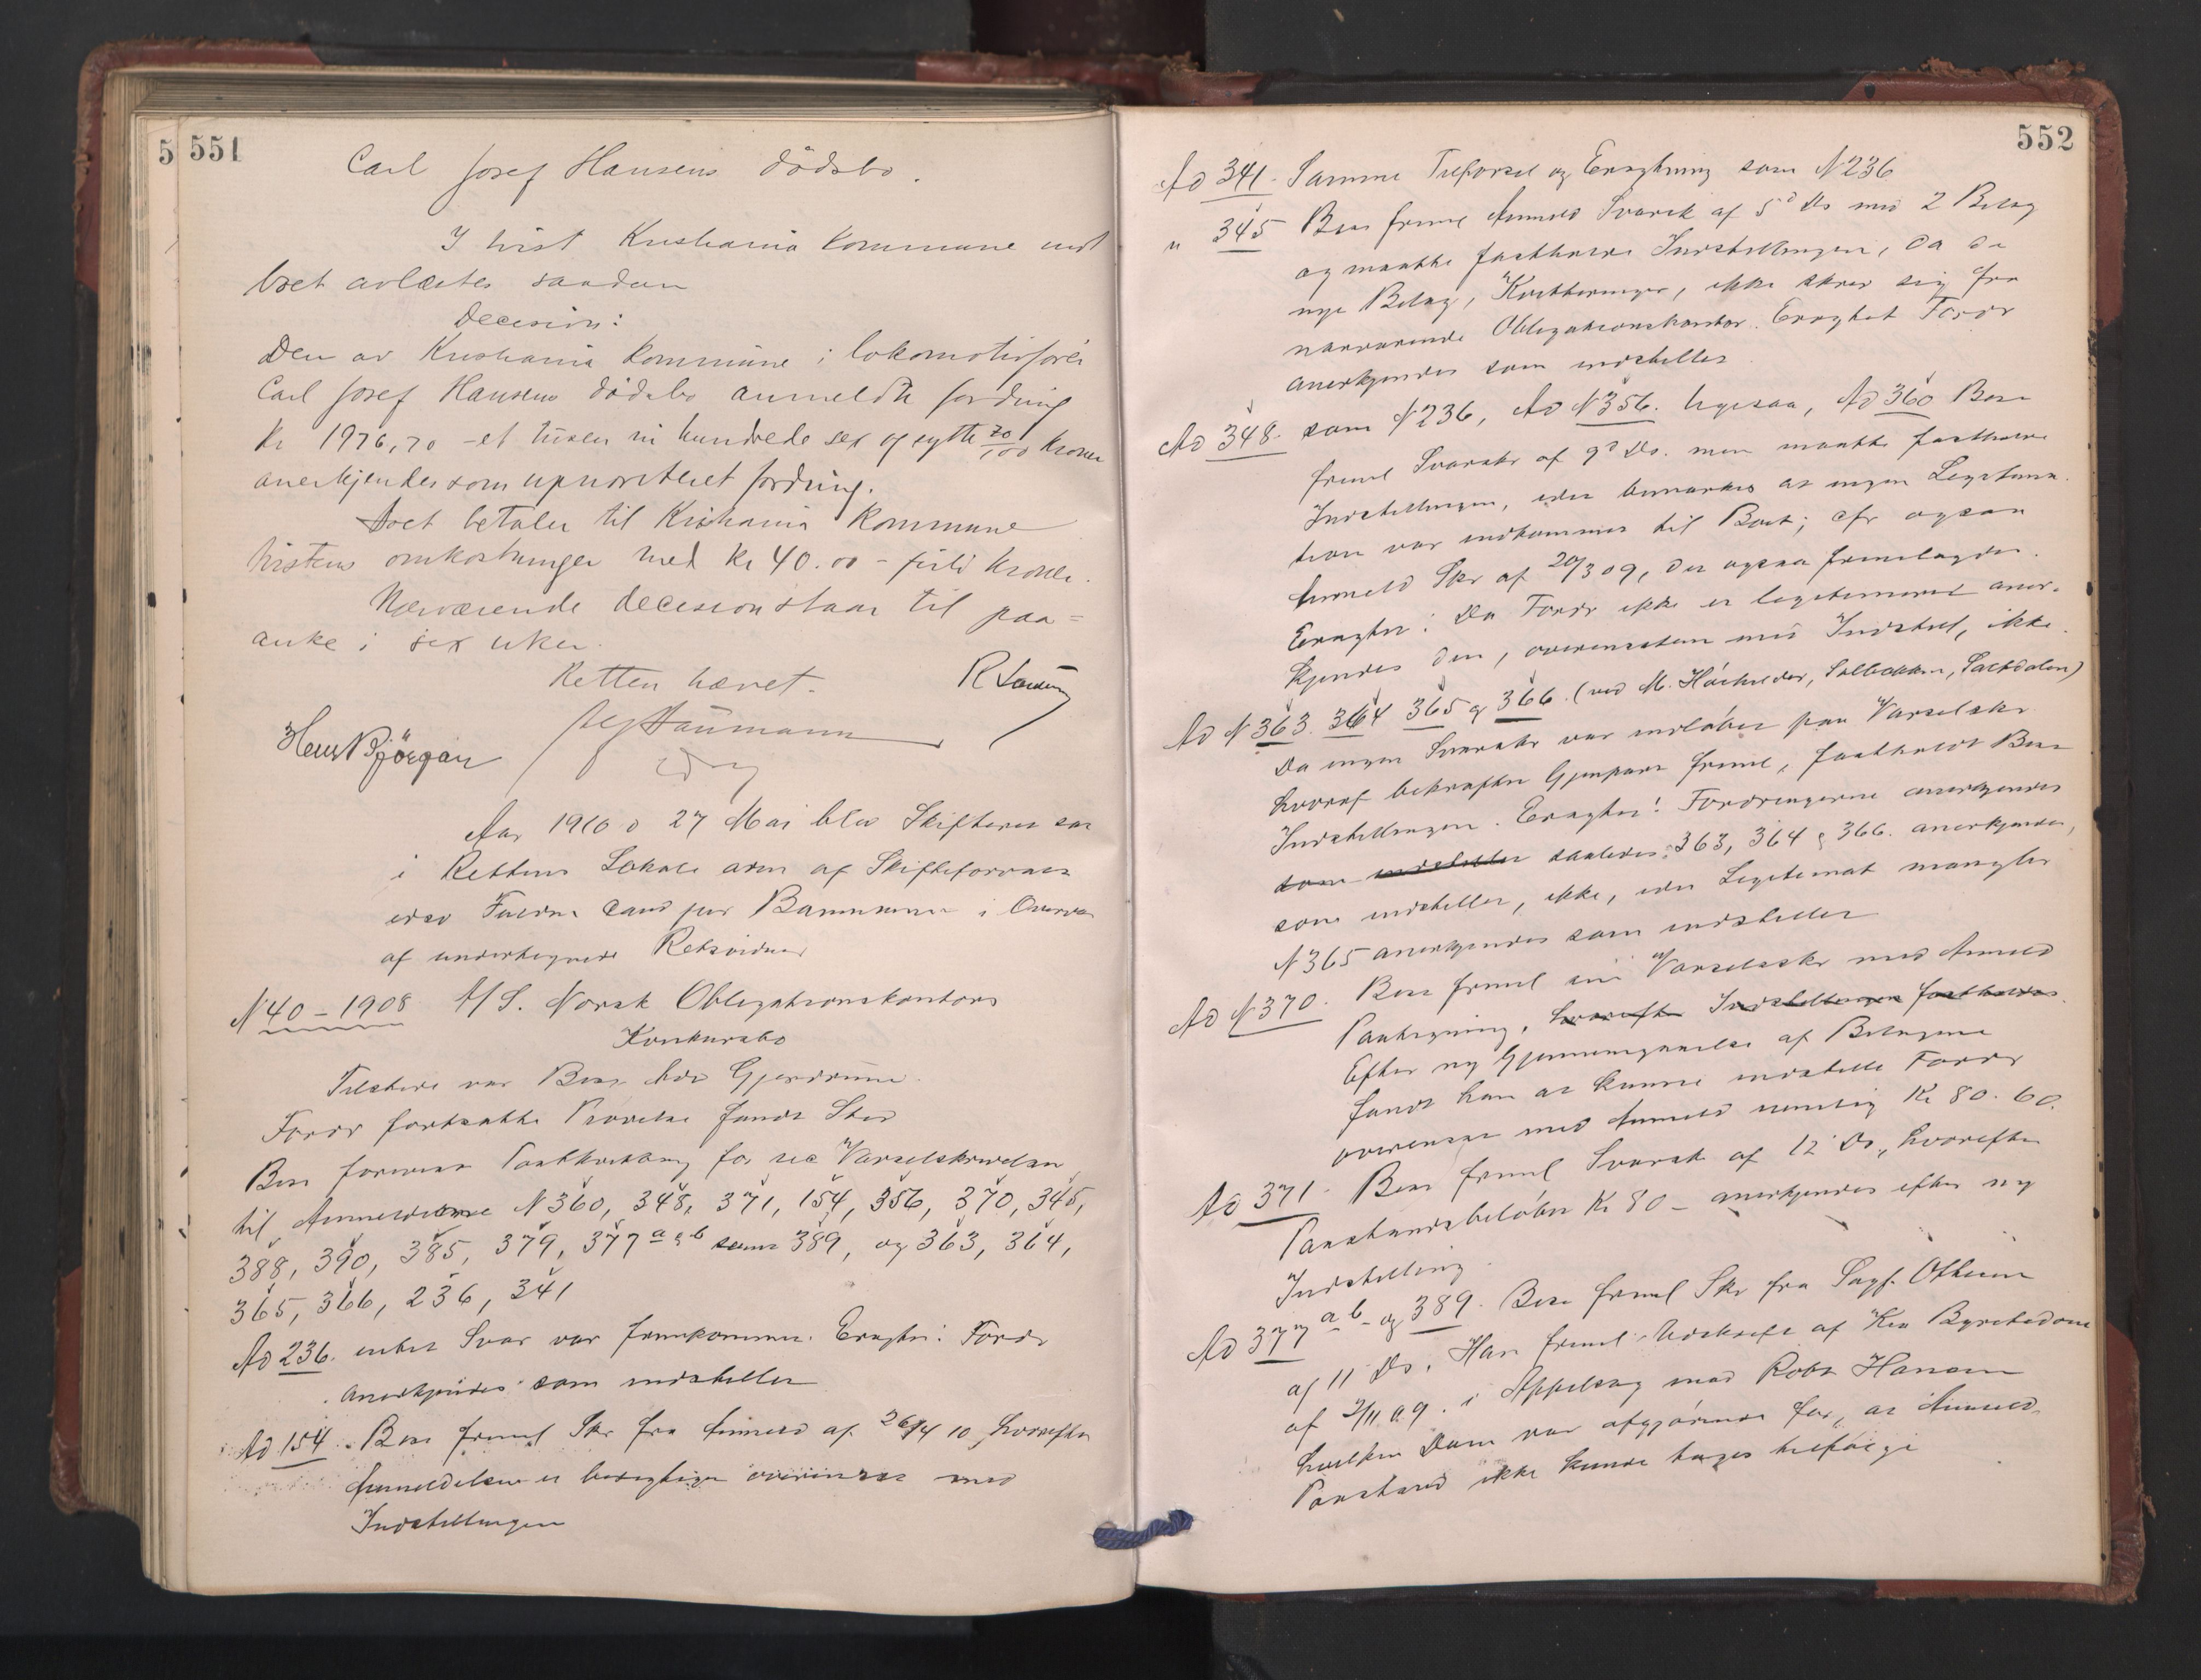 551
Carl Josef Hansens dødsbo.
I tvist Kristiania kommune mot
boet avlæstes saadan
Decision:
Den av Kristiania kommune i lokomotivfører
Carl Josef Hansens dødsbo anmeldte fordring
Kr 1976,70 - et tusen ni hundrede sex og sytti 70/100 kroner
anerkjendes som uprioritert fordring.
Boet betaler til Kristiania kommune
tvistens omkostninger med kr 40.00 - firti kroner.
Nærværende decision staar til paa=
anke i sex uker.
Retten hævet.
Aar 1910 d 27 Mai blev Skifteret sat
i Rettens Lokale adm af Skifteforvalt
af undertegnede Retsvidner
N 40 - 1908 A/S. Norsk Obligationskontors
Konkursbo
Tilstede var Best. Adv Gjerdrum.
Fordr fortsatte Prøvelse fandt Sted
til Anmelderne N 360, 348, 371, 154, 356, 370, 345,
388, 390, 385, 379, 377 a & b samt 389, og 363, 364,
365, 366, 236, 341
Ad 236. intet Svar var fremkommet. Eragtet: Fordr
anerkjendes som indstillet
Ad 154. Best freml Skr fra Anmeld af 26/4 10, hvorefter
Anmeldelsen er berigtiget overensst med
Indstillingen
552
Ad 341. Samme Tilførsel og Eragtning som N 236
" 345 Best freml Anmeld Svarsk af 5d Ds med 2 Bilag
og maatte fastholde Indstillingen, da de
nye Bilag, Kvitteringer, ikke skrev sig fra
nærværende Obligationskontor. Eragtet Fordr
anerkjendes som indstillet
Ad 348. som N 236, Ad N 356. ligesaa, Ad 360 Best
freml Svarskr af 9d Ds. men maatte fastholde
Indstillingen, idet bemærkes at ingen Legitima
tion var indkommet til Boet; cfr ogsaa
Anmeld Skr af 20/3 09, der ogsaa fremlagdes.
Eragtet: Da Fordr ikke er legitimeret aner-
kjendes den, overensstem med Indstill, ikke.
Ad N 363. 364 365 & 366. (ved M. , Solbakken, Saltdalen)
Da ingen Svarskr var indløbet paa Varselskr
hvoraf bekræftet Gjenpart freml, fastholdt Best
Indstillingen. Eragtet: Fordringerne anerkjendes
som indstillet saaledes: 363, 364 & 366. anerkjendes,
som indstillet, ikke, idet Legitimat mangler
N 365 anerkjendes som indstillet
Ad N 370. Best freml sin Varselsskr med Anmeld
Paategning, hvorefter Indstillingen fastholdes.
Efter ny Gjennemgaaelse af Bilagene
fandt han at kunne indstille Fordr
overensst med Anmeld nemlig Kr 80.60.
Ad 371. Best freml Svarsk af 12 Ds, hvorefter
Paastandsbeløbet Kr 80 - anerkjendes efter ny
Indstilling.
Ad 377 a b - og 389. Best freml Skr fra Sagf.
af 11 Ds. Han freml Udskrift af Kra Byretsdom
af 2/11 09. i Appelsag mod Robt Hansen
hvilken Dom var afgjørende for, at Anmeld
Paastand ikke kunde tages tilfølge